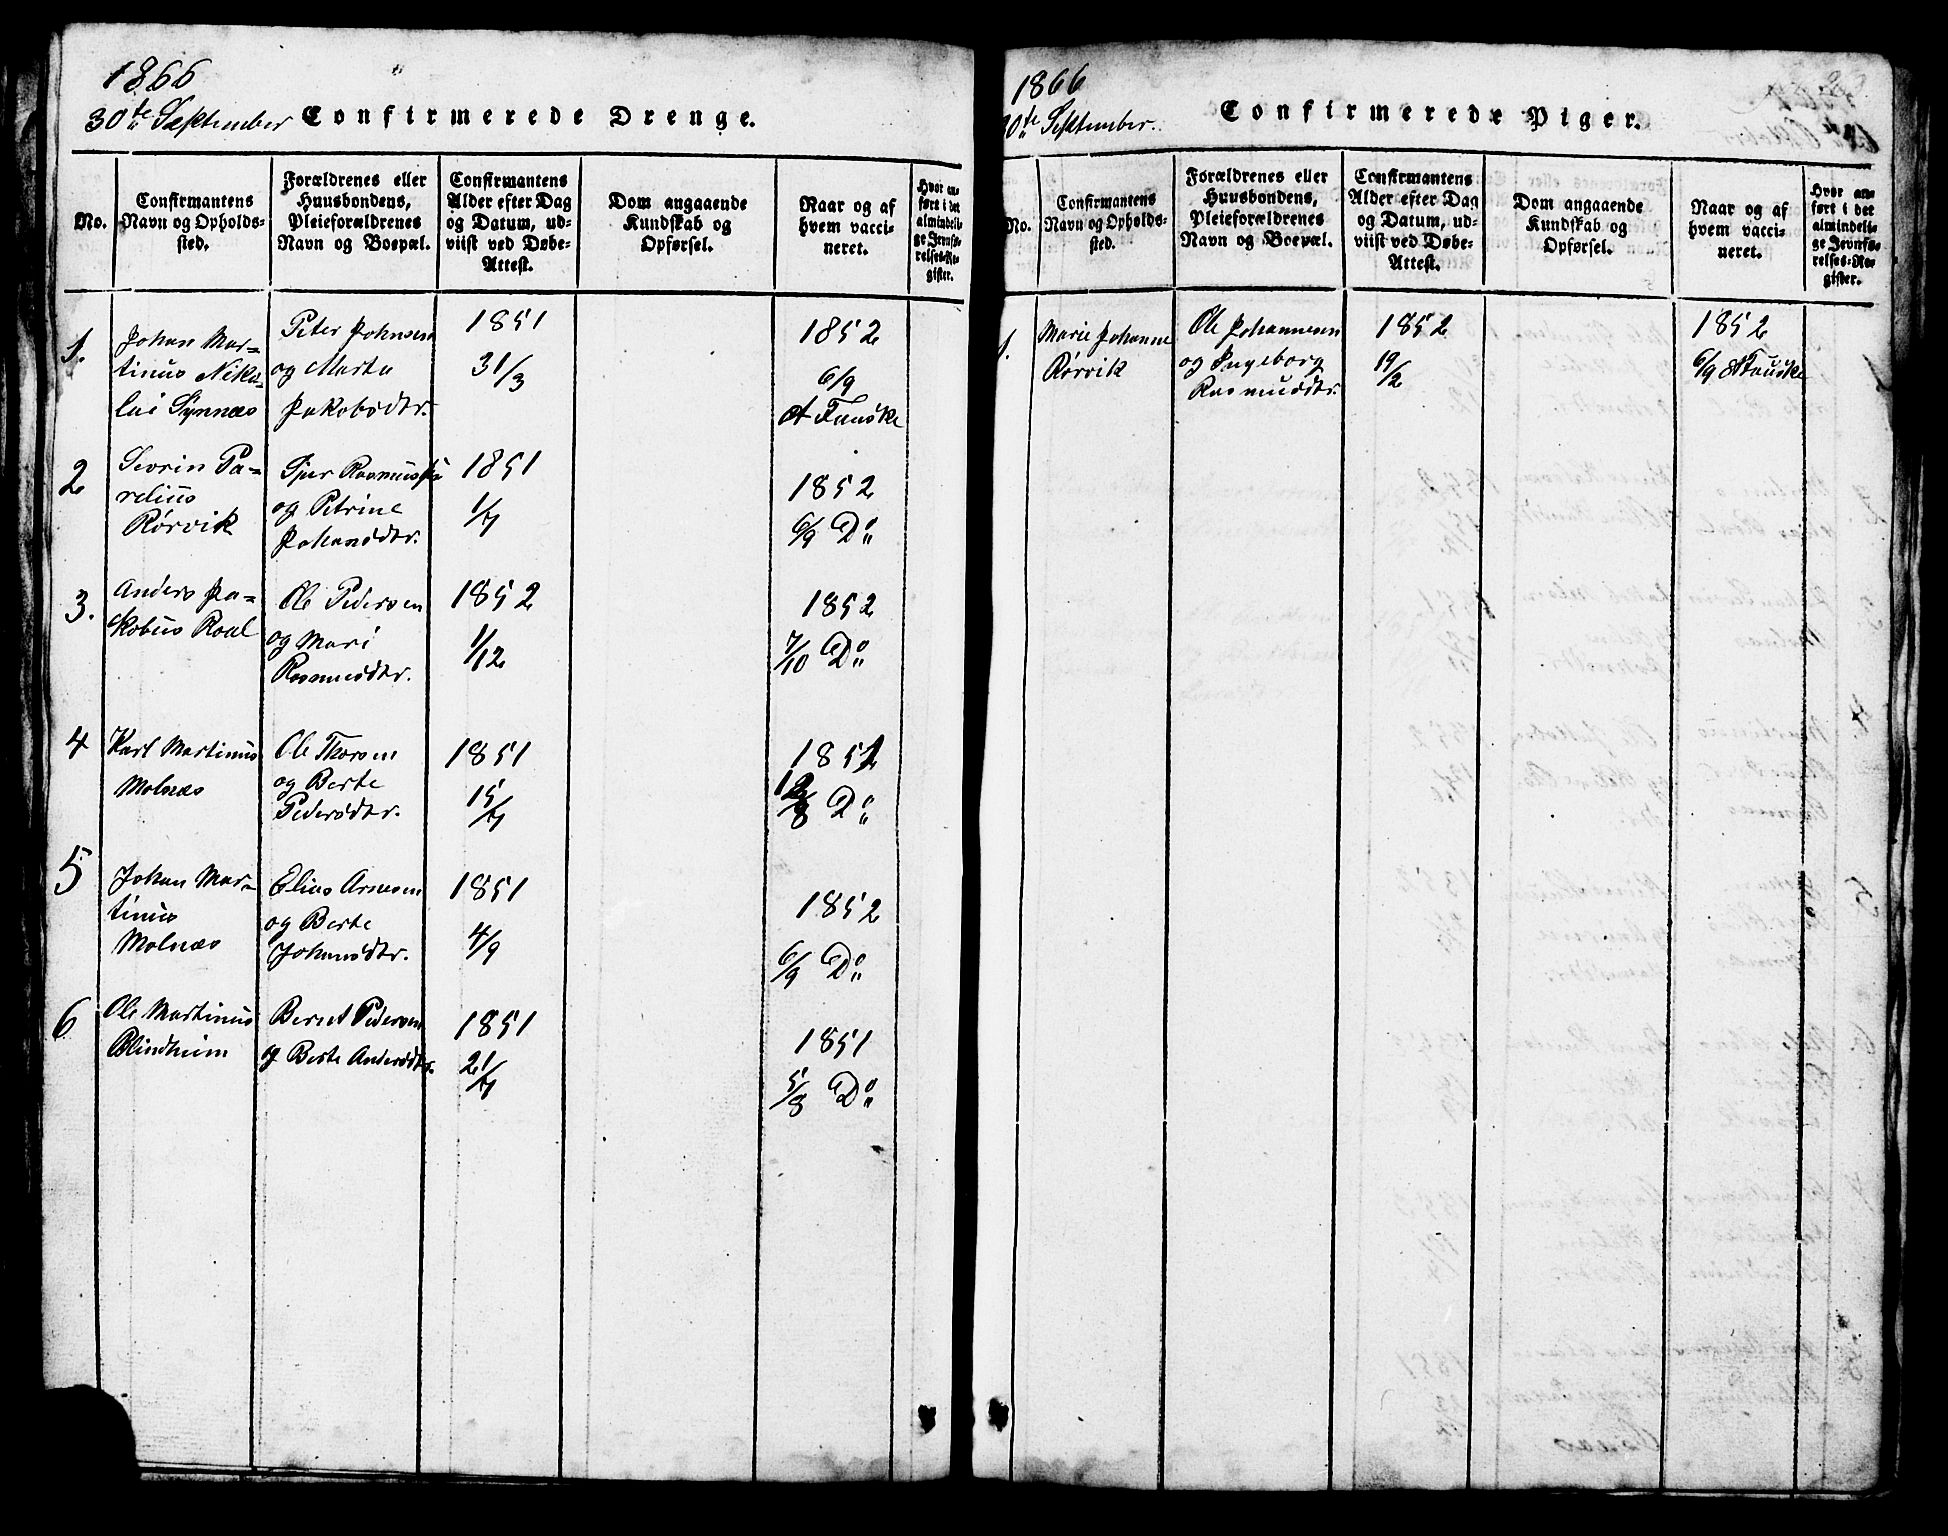 1866
30te September Confirmerede Drenge.
No.
Confirmantens
Navn og Opholds-
sted.
Forældrenes eller
Huusbondens,
Pleieforældrenes
Navn og Boepæl.
Confirmantens
Alder efter Dag
og Datum, ud-
viist ved Døbe-
Attest.
Dom angaaende
Kundskab og
Opførsel.
Naar og af
hvem vacci-
neret.
Hvor an-
ført i det
almindeli-
ge Jevnfø-
relses-Re-
gister.
1.
Johan Mar-
tinus Niko-
lai Synnæs
Peter Johnsen
og Marta
Jakobsdtr.
1851
31/3
1852
6/9
A Fauske
2
Sevrin Pa-
relius
Rørvik
Sjur Rasmuss
og Petrine
Johansdtr.
1851
1/7
1852
6/9 Do
3.
Anders Ja-
kobus Roal
Ole Pedersen
og Mari
Rasmusdtr.
1852
1/12
1852
7/10 Do
4
Karl Martinus
Molnæs
Ole Thorsen
og Berte
Pedersdtr.
1851
15/7
1851
12/8 Do
5
Johan Mar-
tinus
Molnæs
Elias Arnesen
og Berte
Johansdtr.
1851
4/9
1852
6/9 Do
6
Ole Martinus
Blindheim
Bernt Pedersen
og Berte Andersdtr.
1851
21/7
1851
5/8 Do
1866
30te September. Confirmerede Piger.
No.
Confirmantens
Navn og Opholds-
sted.
Forældrenes eller
Huusbondens,
Pleieforældrenes
Navn og Boepæl.
Confirmantens
Alder efter Dag
og Datum, ud-
viist ved Døbe-
Attest.
Dom angaaende
Kundskab og
Opførsel.
Naar og af
hvem vacci-
neret.
Hvor an-
ført i det
almindeli-
ge Jevnfø-
relses-Re-
gister.
1.
Marie Johanne
Rørvik
Ole Johannesen
og Ingeborg
Rasmusdtr.
1852
19/2
1852
6/9 A Fauske